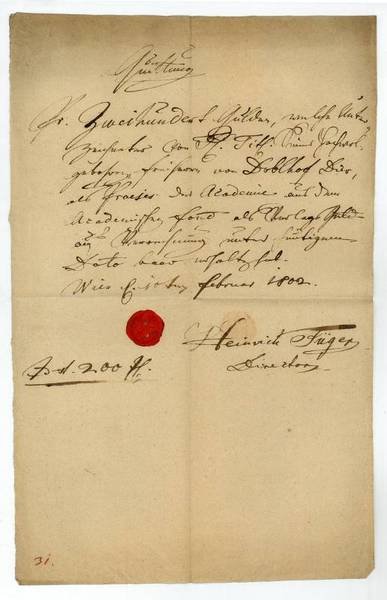 Quittung
Pr. Zweihundert Gulden, welche Unter
zeichneter von Sr. Titl: Herrn Hochwohl
gebohren Freiherrn von Doblhof Dier,
als Praeses der Academie aus dem
Academischen Fond als Verlags Geld
auf Verrechnung unter heutigem
Dato baar erhalten hat.
Wien, den 10ten Februar 1802.
Heinrich Füger
Director
200 fl.
31.